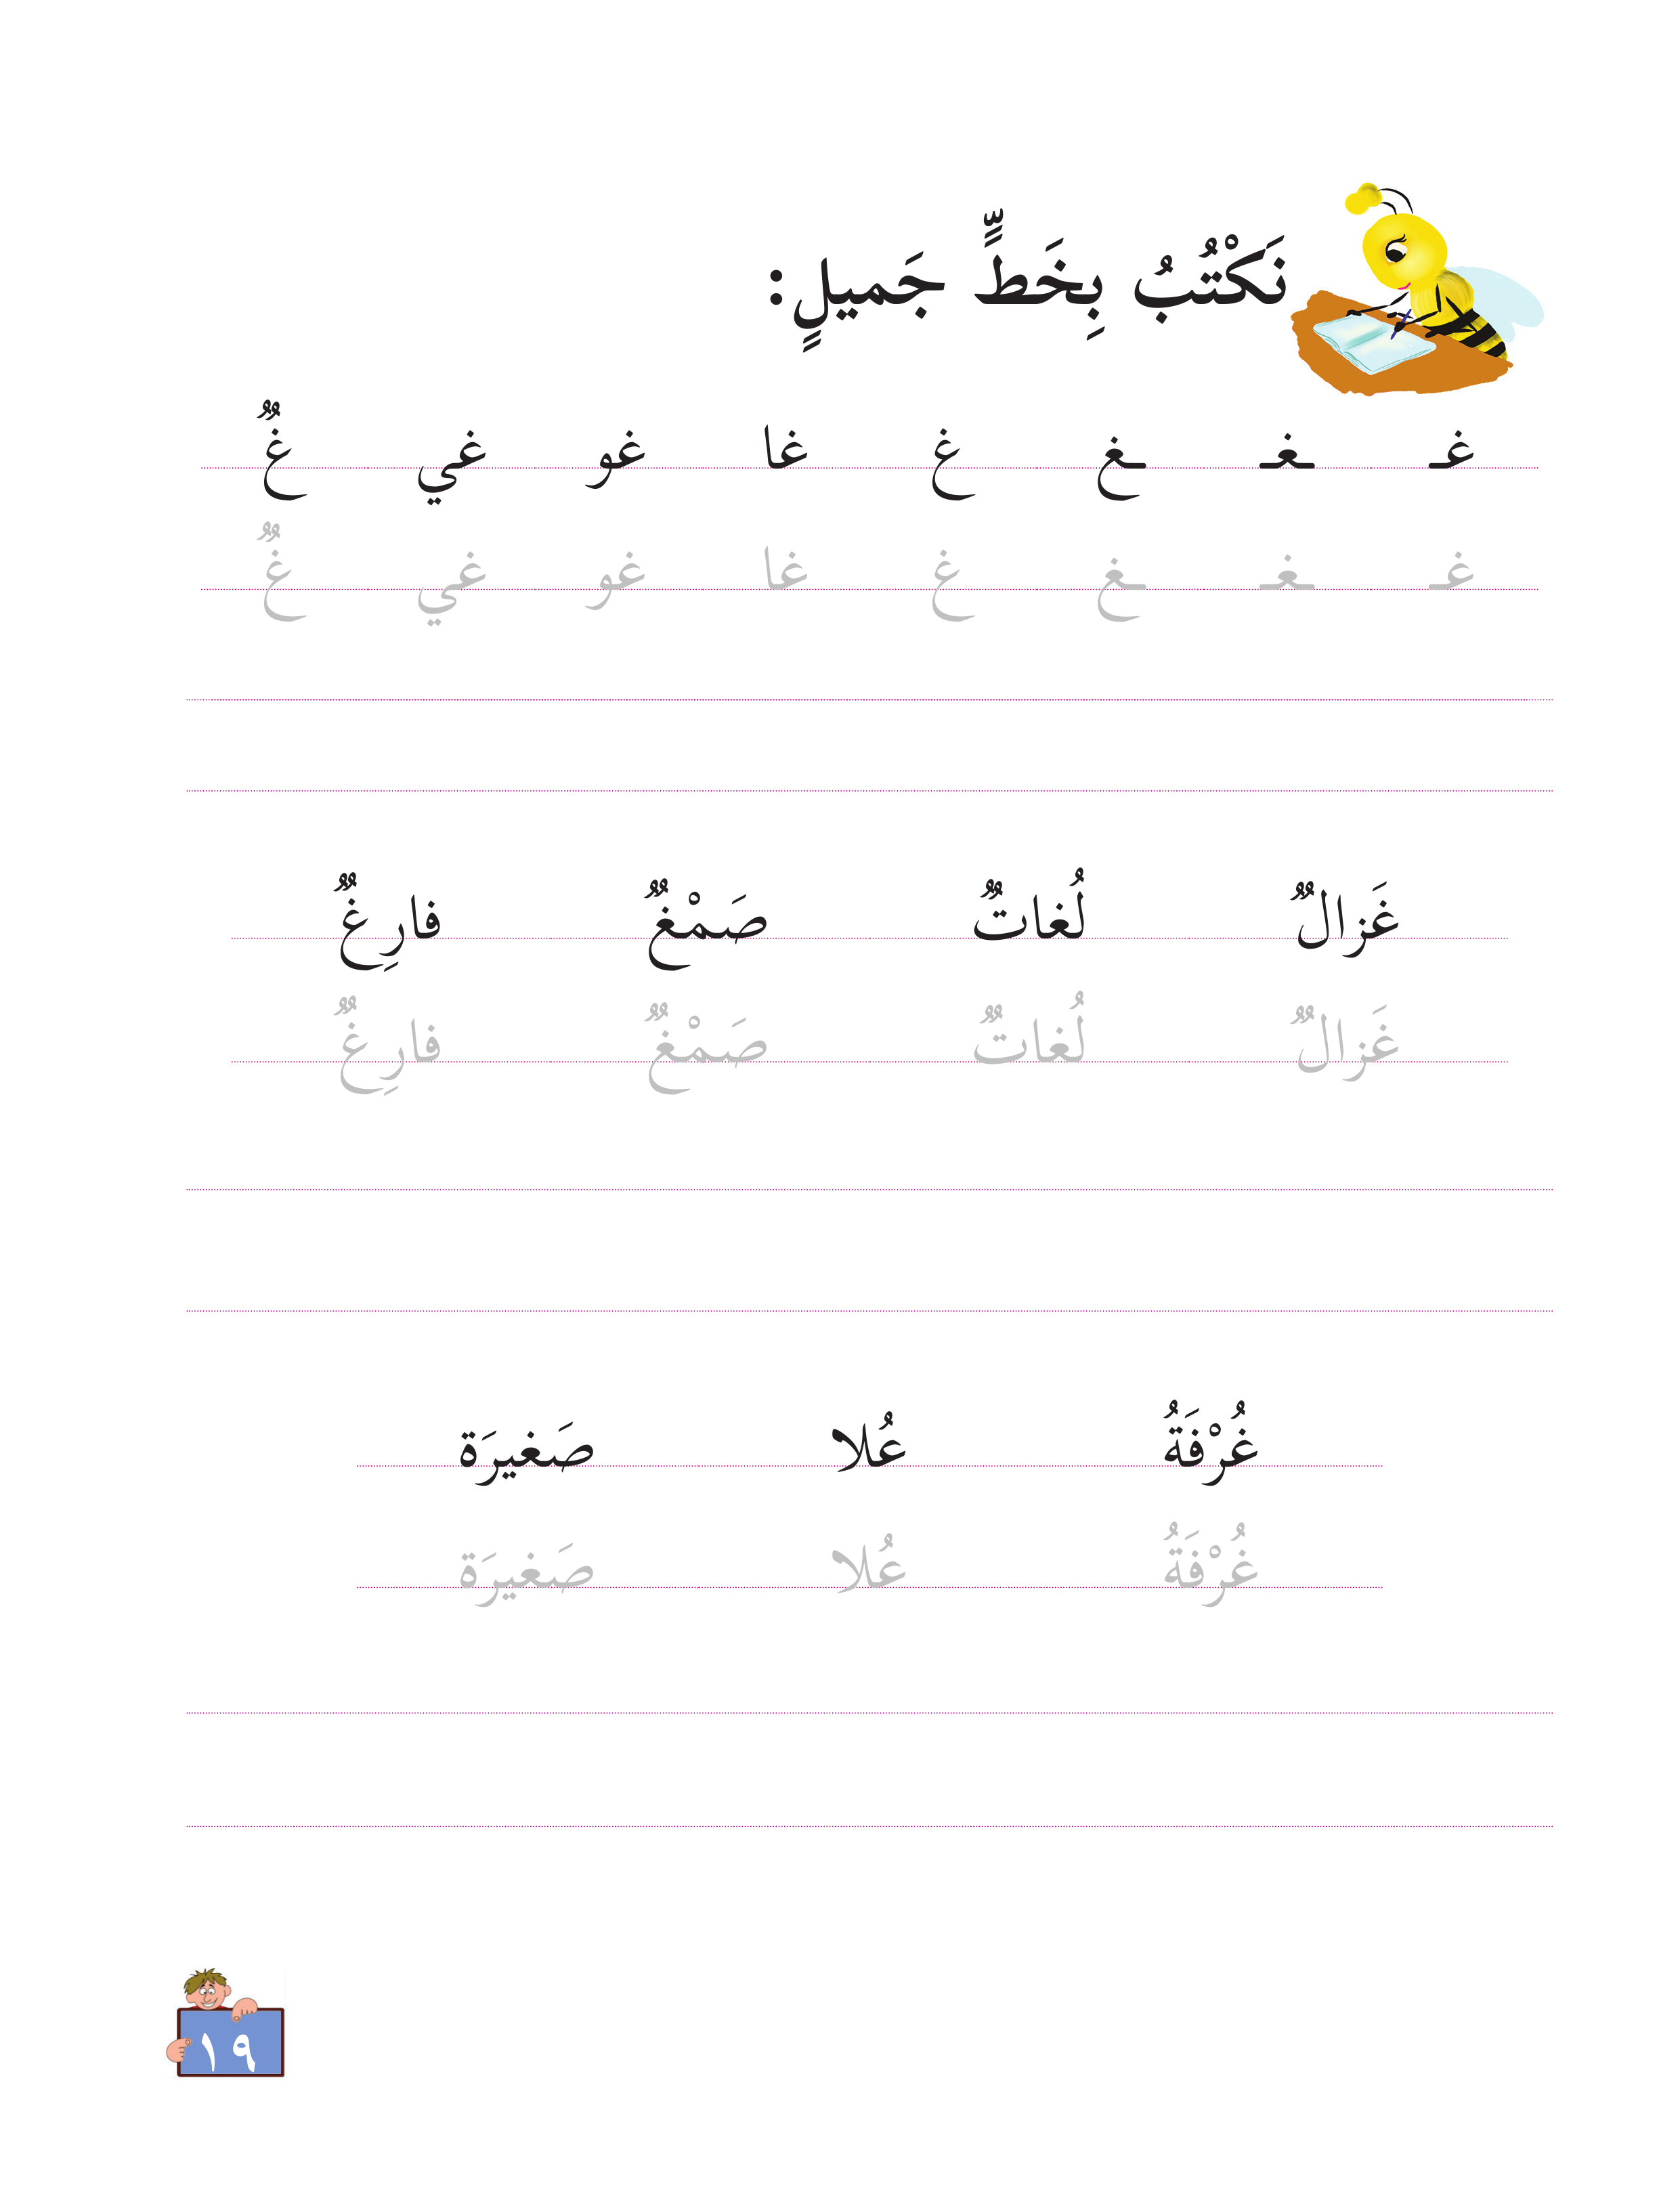 نَكْتُبُ بِخَطٍّ جَميلٍ:
غـ ـغـ ـغ غ غا غو غي غٌ
غـ ـغـ ـغ غ غا غو غي غٌ
غَزالٌ لُغاتٌ صَمْغٌ فارِغٌ
غَزالٌ لُغاتٌ صَمْغٌ فارِغٌ
غُرْفَةُ عُلا صَغيرَة
غُرْفَةُ عُلا صَغيرَة
١٩